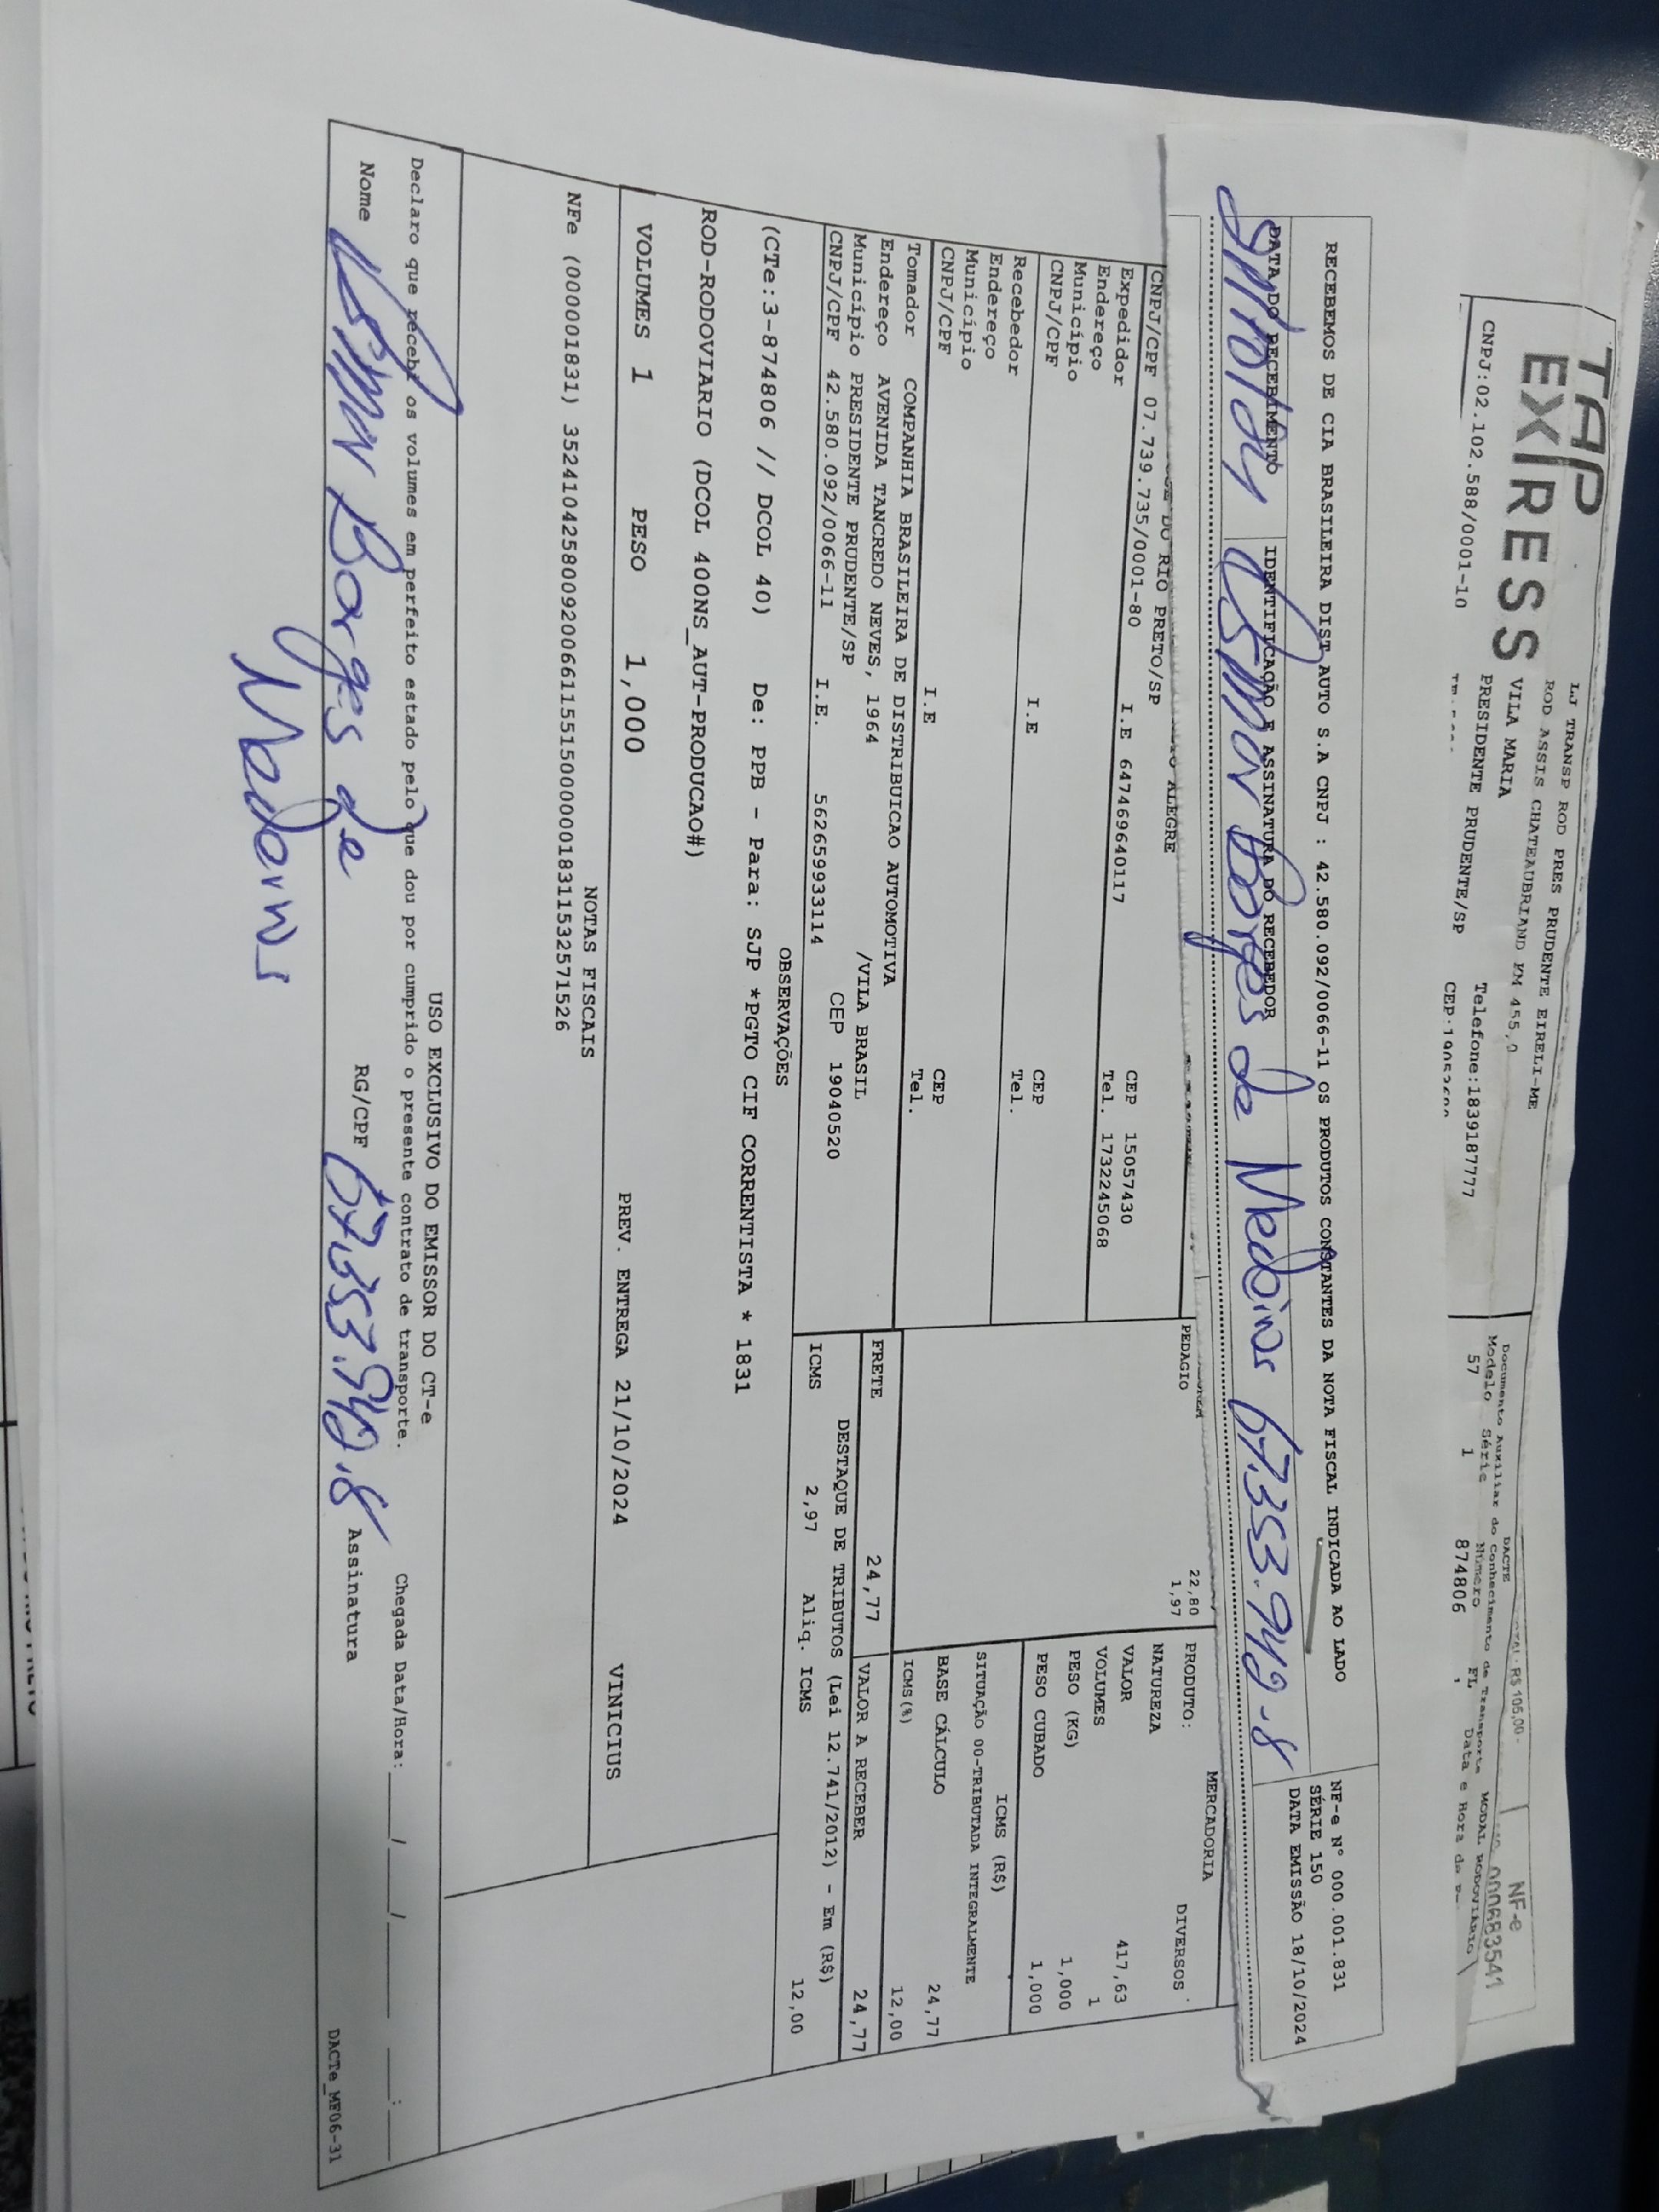 TAP
EXPRESS
CNPJ:02.102.588/0001-10
LJ TRANSP ROD PRES PRUDENTE EIRELI-ME
ROD ASSIS CHATEAUBRIAND KM 455,0
VILA MARIA
PRESIDENTE PRUDENTE/SP
Telefone:1839187777
DACTE
Documento Auxiliar do Conhecimento de Transporte
Modelo Série Número FL Data e Hora
57 1 874806
MODAL RODOVIÁRIO
TOTAL: R$ 105,00
NF-e
000683541
RECEBEMOS DE CIA BRASILEIRA DIST AUTO S.A CNPJ : 42.580.092/0066-11 OS PRODUTOS CONSTANTES DA NOTA FISCAL INDICADA AO LADO
NF-e N° 000.001.831
SÉRIE 150
DATA EMISSÃO 18/10/2024
DATA DO RECEBIMENTO
IDENTIFICAÇÃO E ASSINATURA DO RECEBEDOR
Borges de Medeiros 67.353.949-8
DO RIO PRETO/SP
ALEGRE
CNPJ/CPF 07.739.735/0001-80 I.E 647469640117
Expedidor CEP 15057430
Endereço Tel. 1732245068
Município
CNPJ/CPF I.E
Recebedor CEP
Endereço Tel.
Município
CNPJ/CPF I.E CEP
Tel.
Tomador COMPANHIA BRASILEIRA DE DISTRIBUICAO AUTOMOTIVA
Endereço AVENIDA TANCREDO NEVES, 1964 /VILA BRASIL
Município PRESIDENTE PRUDENTE/SP CEP 19040520
CNPJ/CPF 42.580.092/0066-11 I.E. 562659933114
PEDAGIO
22,80
1,97
MERCADORIA
PRODUTO: DIVERSOS
NATUREZA
VALOR 417,63
VOLUMES 1
PESO (KG) 1,000
PESO CUBADO 1,000
ICMS (R$)
SITUAÇÃO 00-TRIBUTADA INTEGRALMENTE
BASE CÁLCULO 24,77
ICMS(%) 12,00
FRETE 24,77 VALOR A RECEBER 24,77
DESTAQUE DE TRIBUTOS (Lei 12.741/2012) - Em (R$)
ICMS 2,97 Aliq. ICMS 12,00
OBSERVAÇÕES
(CTe:3-874806 // DCOL 40) De: PPB - Para: SJP *PGTO CIF CORRENTISTA * 1831
ROD-RODOVIARIO (DCOL 400NS_AUT-PRODUCAO#)
VOLUMES 1 PESO 1,000 PREV. ENTREGA 21/10/2024 VINICIUS
NOTAS FISCAIS
NFe (000001831) 35241042580092006611551500000018311532571526
USO EXCLUSIVO DO EMISSOR DO CT-e
Declaro que recebi os volumes em perfeito estado pelo que dou por cumprido o presente contrato de transporte. Chegada Data/Hora: ___/___/_____ ___:___
Nome Borges de RG/CPF 67.353.949.8 Assinatura
Medeiros
DACTe_MF06-31